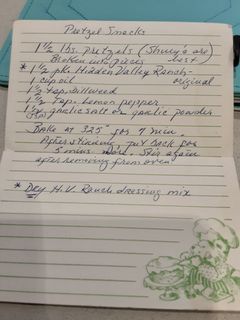 Pretzel Snacks
1 1/2 lbs. pretzels (Shurfy's are
Broken into pieces best)
* 1 1/2 pk. Hidden Valley Ranch-
original
1 cup oil
1 1/2 tsp. Dillweed
1 1/2 tsp. Lemon pepper
1/2 garlic salt or garlic powder
Bake at 325° for 9 min.
After stirring put back for
5 mins more. Stir again
after removing from oven
* Dry H.V. Ranch dressing mix